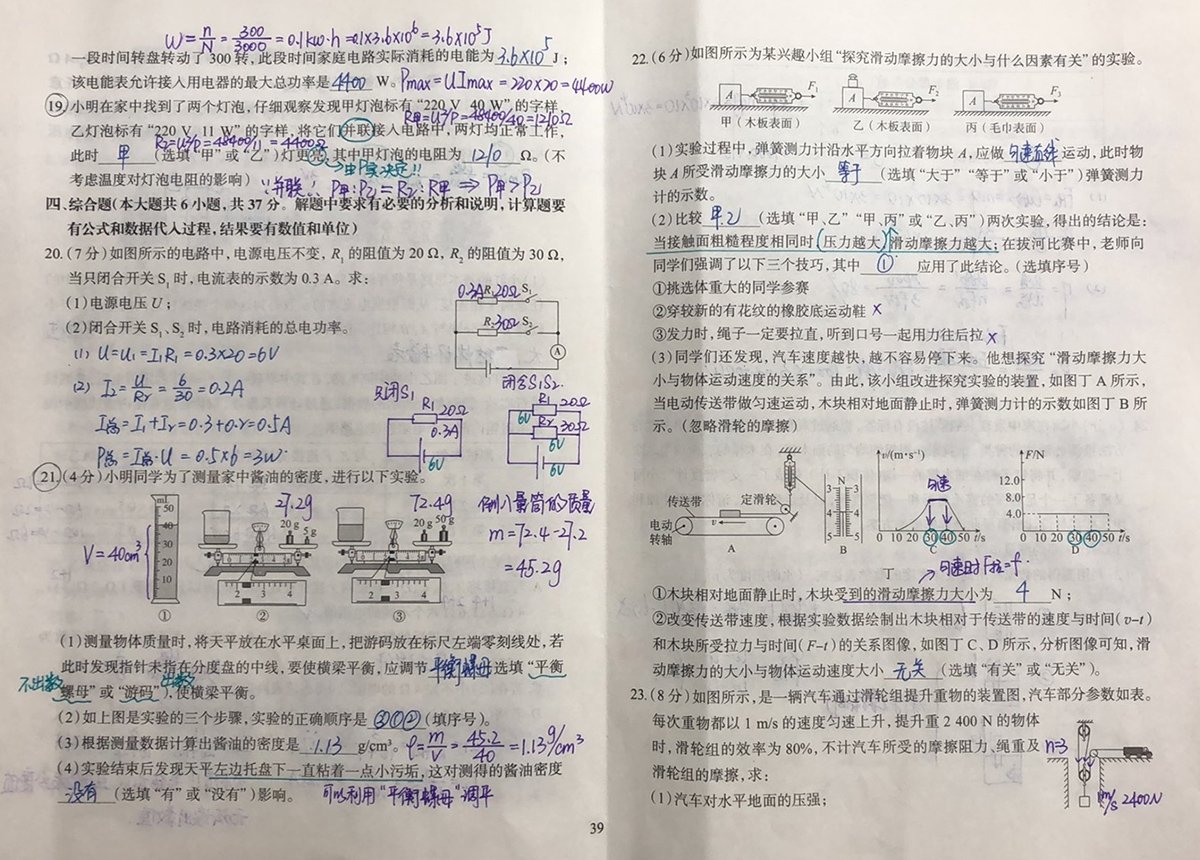 W = n/N = 300/3000 = 0.1kw·h = 0.1×3.6×10⁶ = 3.6×10⁵J
一段时间转盘转动了 300 转,此段时间家庭电路实际消耗的电能为 3.6×10⁵ J;
该电能表允许接入用电器的最大总功率是 4400 W。Pmax = UImax = 220×20 = 4400W
19.小明在家中找到了两个灯泡,仔细观察发现甲灯泡标有“220 V 40 W”的字样,
R甲=U²/P=48400/40=1210Ω
乙灯泡标有“220 V 11 W”的字样,将它们并联接入电路中,两灯均正常工作,
R乙=U²/P=48400/11=4400Ω
此时 甲 (选填“甲”或“乙”)灯更亮,其中甲灯泡的电阻为 1210 Ω。(不
由P实决定!!
考虑温度对灯泡电阻的影响)
∵并联∴ P甲:P乙=R乙:R甲 ⇒ P甲>P乙
四、综合题(本大题共 6 小题,共 37 分。解题中要求有必要的分析和说明,计算题要
有公式和数据代入过程,结果要有数值和单位)
20.(7 分)如图所示的电路中,电源电压不变,R₁ 的阻值为 20 Ω,R₂ 的阻值为 30 Ω,
当只闭合开关 S₁ 时,电流表的示数为 0.3 A。求:
(1)电源电压 U;
(2)闭合开关 S₁、S₂ 时,电路消耗的总电功率。
0.3A R₁ 20Ω S₁
R₂ 30Ω S₂
A
(1) U=U₁=I₁R₁=0.3×20=6V
(2) I₂=U/R₂=6/30=0.2A
I总=I₁+I₂=0.3+0.2=0.5A
P总=I总·U=0.5×6=3W
只闭S₁
R₁ 20Ω
0.3A
6V
闭合S₁S₂
R₁ 20Ω
6V R₂ 30Ω
6V
6V
21.(4 分)小明同学为了测量家中酱油的密度,进行以下实验。
mL
50
40
30
20
10
V=40cm³
①
27.2g
20 g 5 g
2 3 4
②
72.4g
20 g 50 g
2 3 4
③
倒入量筒的质量
m=72.4-27.2
=45.2g
(1)测量物体质量时,将天平放在水平桌面上,把游码放在标尺左端零刻线处,若
此时发现指针未指在分度盘的中线,要使横梁平衡,应调节 平衡螺母 选填“平衡
螺母”或“游码”),使横梁平衡。
(2)如上图是实验的三个步骤,实验的正确顺序是 ③①② (填序号)。
(3)根据测量数据计算出酱油的密度是 1.13 g/cm³。 ρ=m/V=45.2/40=1.13g/cm³
(4)实验结束后发现天平左边托盘下一直粘着一点小污垢,这对测得的酱油密度
没有 (选填“有”或“没有”)影响。 可以利用“平衡螺母”调平
39
22.(6 分)如图所示为某兴趣小组“探究滑动摩擦力的大小与什么因素有关”的实验。
A F₁
A F₂
A F₃
甲(木板表面) 乙(木板表面) 丙(毛巾表面)
(1)实验过程中,弹簧测力计沿水平方向拉着物块 A,应做 匀速直线 运动,此时物
块 A 所受滑动摩擦力的大小 等于 (选填“大于”“等于”或“小于”)弹簧测力
计的示数。
(2)比较 甲.乙 (选填“甲、乙”“甲、丙”或“乙、丙”)两次实验,得出的结论是:
当接触面粗糙程度相同时,压力越大,滑动摩擦力越大;在拔河比赛中,老师向
同学们强调了以下三个技巧,其中 ① 应用了此结论。(选填序号)
①挑选体重大的同学参赛
②穿较新的有花纹的橡胶底运动鞋 ×
③发力时,绳子一定要拉直,听到口号一起用力往后拉 ×
(3)同学们还发现,汽车速度越快,越不容易停下来。他想探究“滑动摩擦力大
小与物体运动速度的关系”。由此,该小组改进探究实验的装置,如图丁 A 所示,
当电动传送带做匀速运动,木块相对地面静止时,弹簧测力计的示数如图丁 B 所
示。(忽略滑轮的摩擦)
传送带 定滑轮
电动
转轴
v
A
N
3 3
4 4
5 5
B
v/(m·s⁻¹)
匀速
0 10 20 30 40 50 t/s
C
F/N
12.0
8.0
4.0
0 10 20 30 40 50 t/s
D
丁
匀速时F拉=f
①木块相对地面静止时,木块受到的滑动摩擦力大小为 4 N;
②改变传送带速度,根据实验数据绘制出木块相对于传送带的速度与时间(v-t)
和木块所受拉力与时间(F-t)的关系图像,如图丁 C、D 所示,分析图像可知,滑
动摩擦力的大小与物体运动速度大小 无关 (选填“有关”或“无关”)。
23.(8 分)如图所示,是一辆汽车通过滑轮组提升重物的装置图,汽车部分参数如表。
每次重物都以 1 m/s 的速度匀速上升,提升重 2 400 N 的物体
时,滑轮组的效率为 80%,不计汽车所受的摩擦阻力、绳重及
滑轮组的摩擦,求:
(1)汽车对水平地面的压强;
n=3
1m/s 2400N